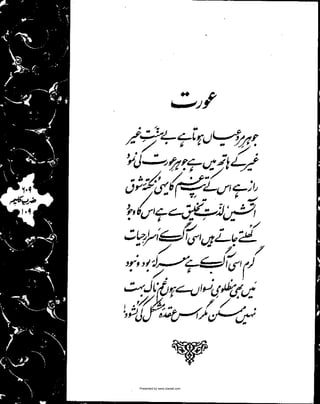 عورت
جوہرِ مرد عیاں ہوتا ہے بے منّتِ غیر
غیر کے ہاتھ میں ہے جوہرِ عورت کی نمود
راز ہے اس کے تپِ غم کا یہی نکتۂ شوق
آتشیں لذّتِ تخلیق سے ہے اس کا وجود
کھلتے جاتے ہیں اسی آگ سے اسرارِ حیات
گرم اسی آگ سے ہے معرکۂ بود و نبود
میں بھی مظلومیِ نسواں سے ہوں غم ناک بہت
نہیں ممکن مگر اس عقدۂ مشکل کی کشود
ضربِ کلیم
Presented by www.ziaraat.com